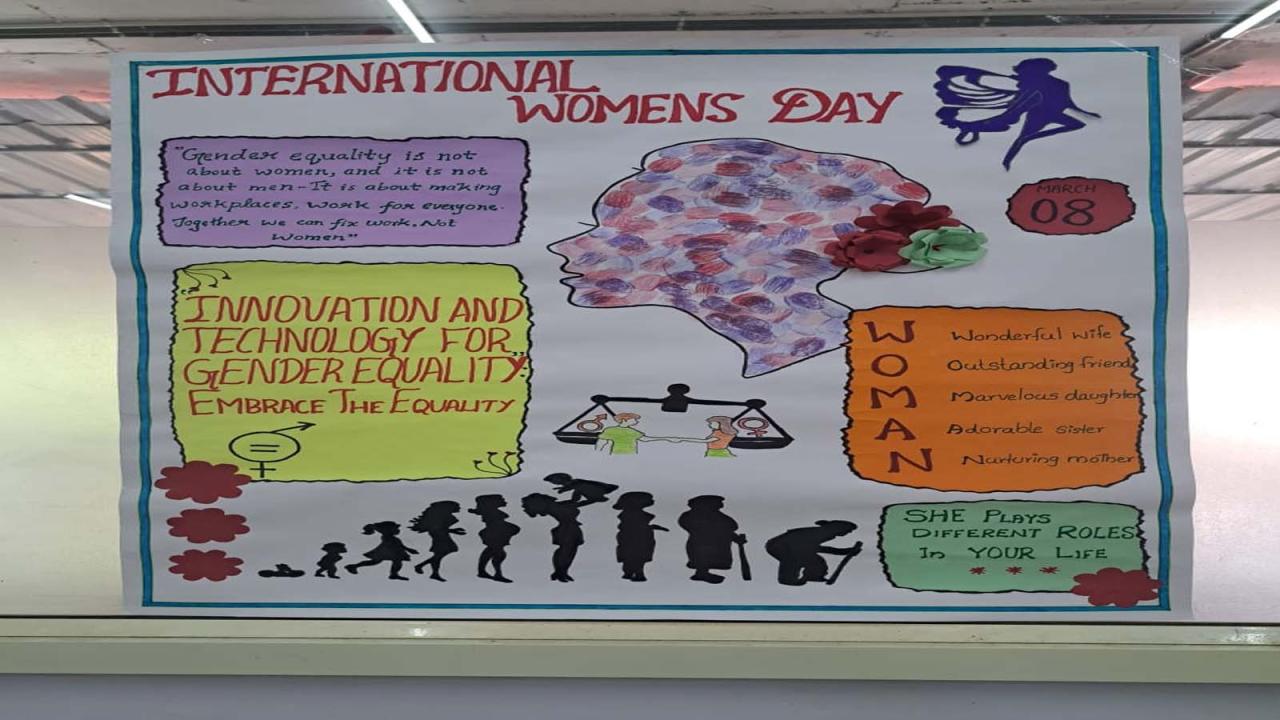 INTERNATIONAL
WOMENS DAY
"Gender equality is not
about women, and it is not
about men - It is about making
workplaces, work for everyone.
Together we can fix work, Not
Women"
MARCH
08
INNOVATION AND
TECHNOLOGY FOR
GENDER EQUALITY."
EMBRACE THE EQUALITY
W Wonderful wife
O Outstanding friend
M Marvelous daughter
A Adorable sister
N Nurturing mother
SHE PLAYS
DIFFERENT ROLES
In YOUR LIFE
* * *